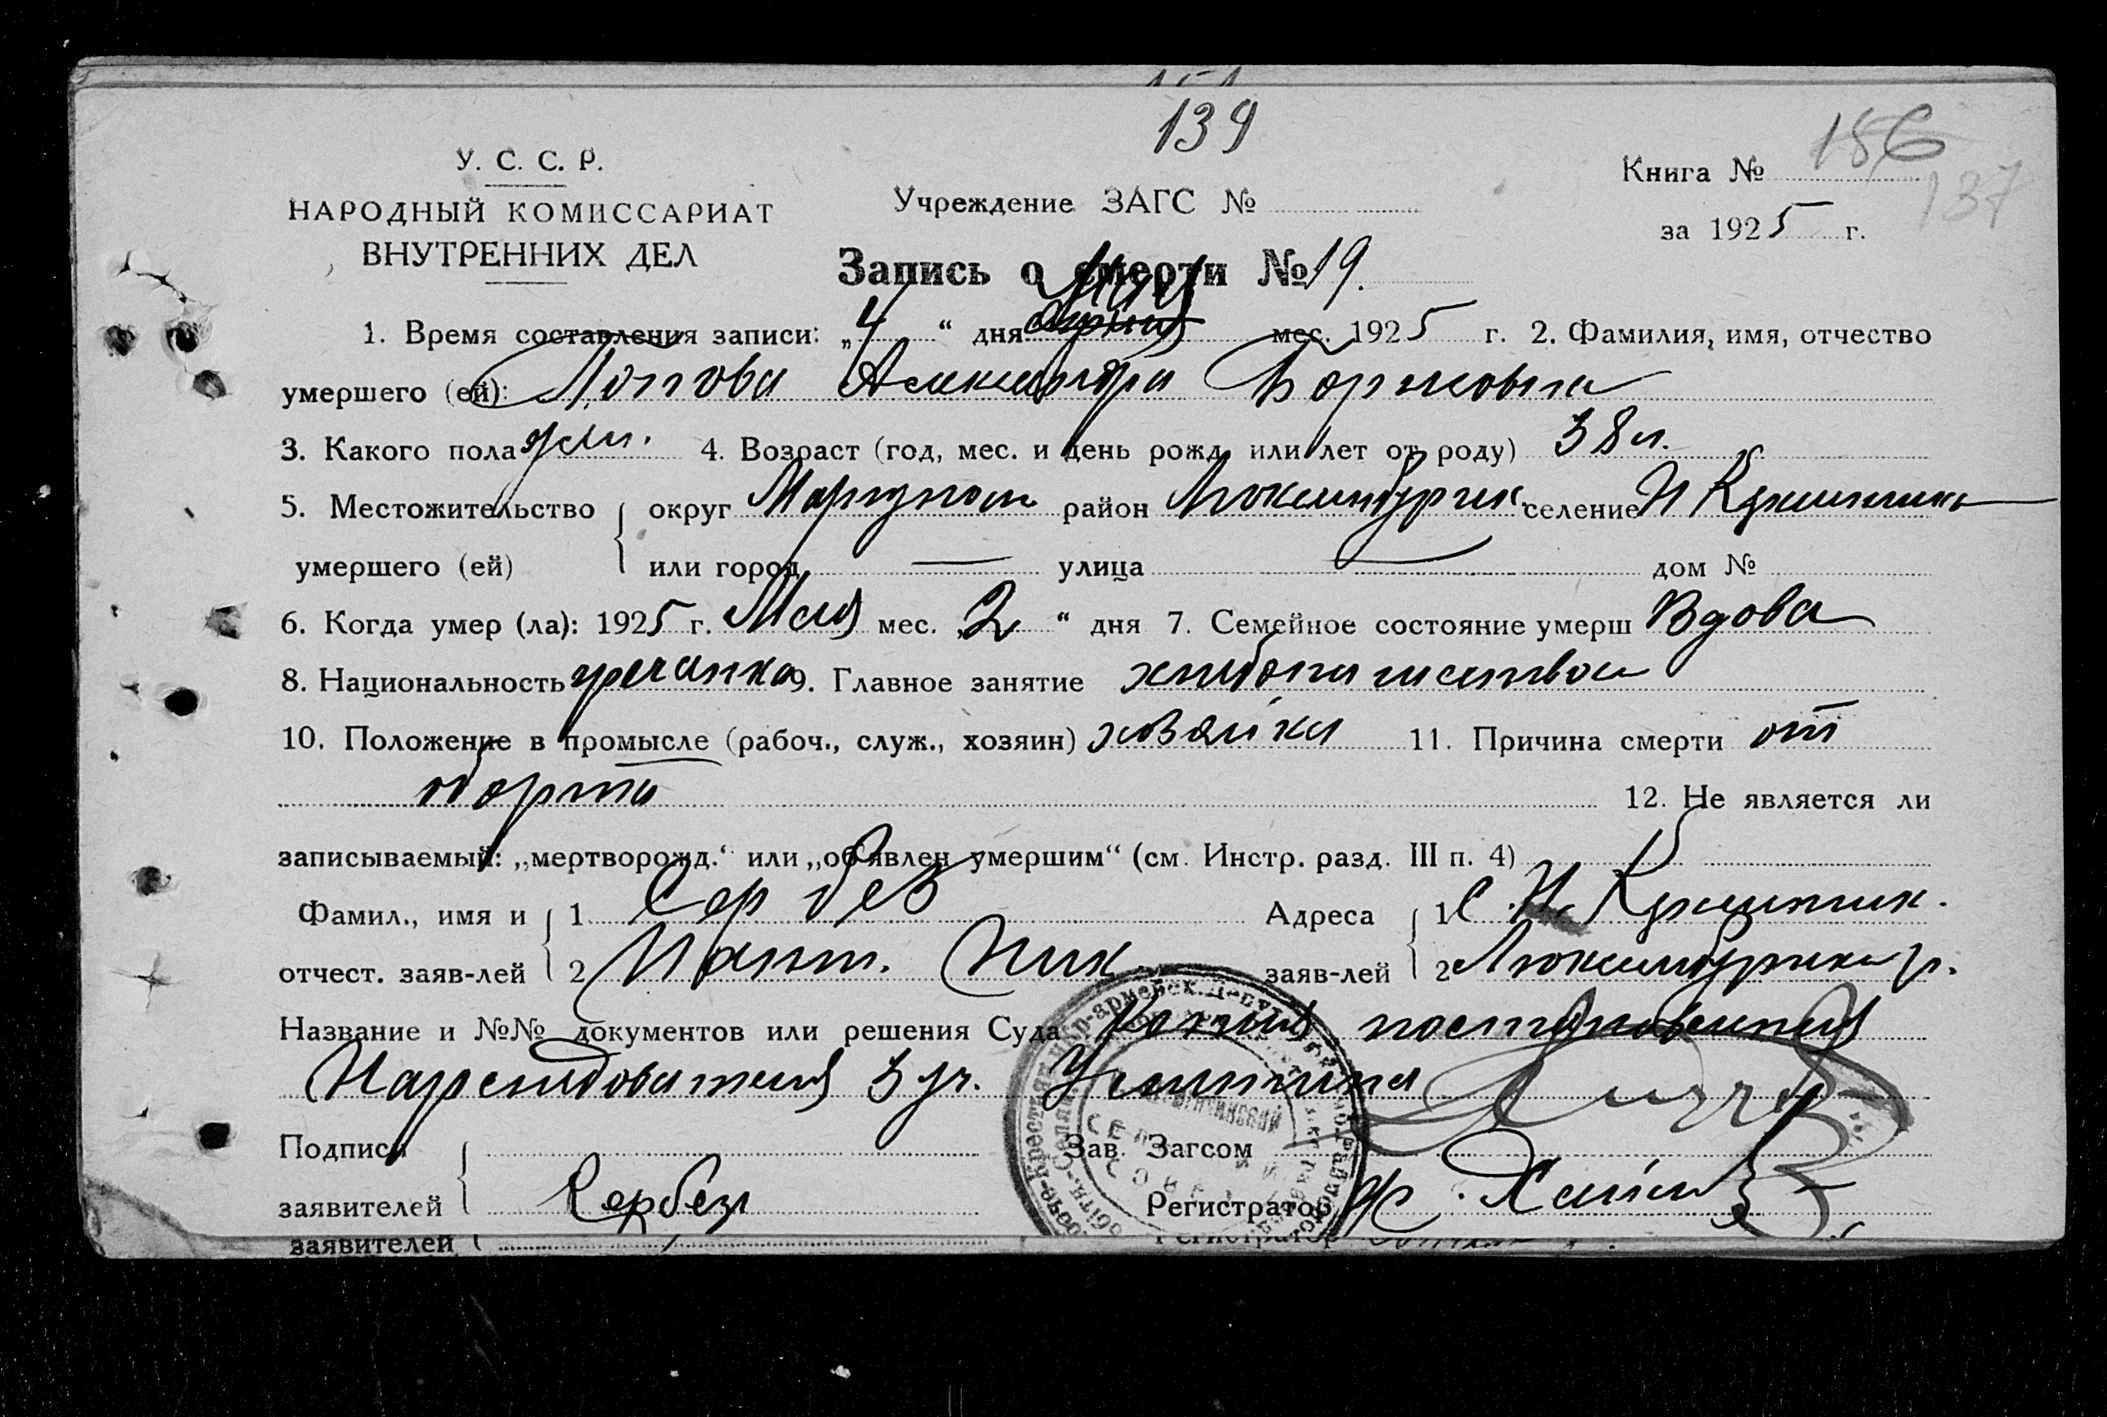 139
У. С. С. Р.
НАРОДНЫЙ КОМИССАРИАТ
ВНУТРЕННИХ ДЕЛ
Учреждение ЗАГС №
Книга № 186
137
за 1925 г.
Запись о смерти № 19.
1. Время составления записи: „4 “ дня Мая мес. 1925 г. 2. Фамилия, имя, отчество
умершего (ей): Попова Александра Борисовна
3. Какого пола жен. 4. Возраст (год, мес. и день рожд. или лет от роду) 38 л.
5. Местожительство округ Мариупол район Люксембургск селение Н Каменка
умершего (ей) или город — улица — дом №
6. Когда умер (ла): 1925 г. Мая мес. „2 “ дня 7. Семейное состояние умерш Вдова
8. Национальность гречанка 9. Главное занятие хлебопашество
10. Положение в промысле (рабоч., служ., хозяин) хозяйка 11. Причина смерти от
аборта
12. Не является ли
записываемый: „мертворожд.“ или „об'явлен умершим“ (см. Инстр. разд. III п. 4)
Фамил., имя и 1 Сербез Адреса 1 С. Н.
отчест. заяв-лей 2 Пант. Ник. заяв-лей 2 Люксембургск р.
Название и №№ документов или решения Суда Копия постановления
Нарследователя 3 уч.
Подписи Зав. Загсом
заявителей Сербез Регистратор
заявителей Регистратор